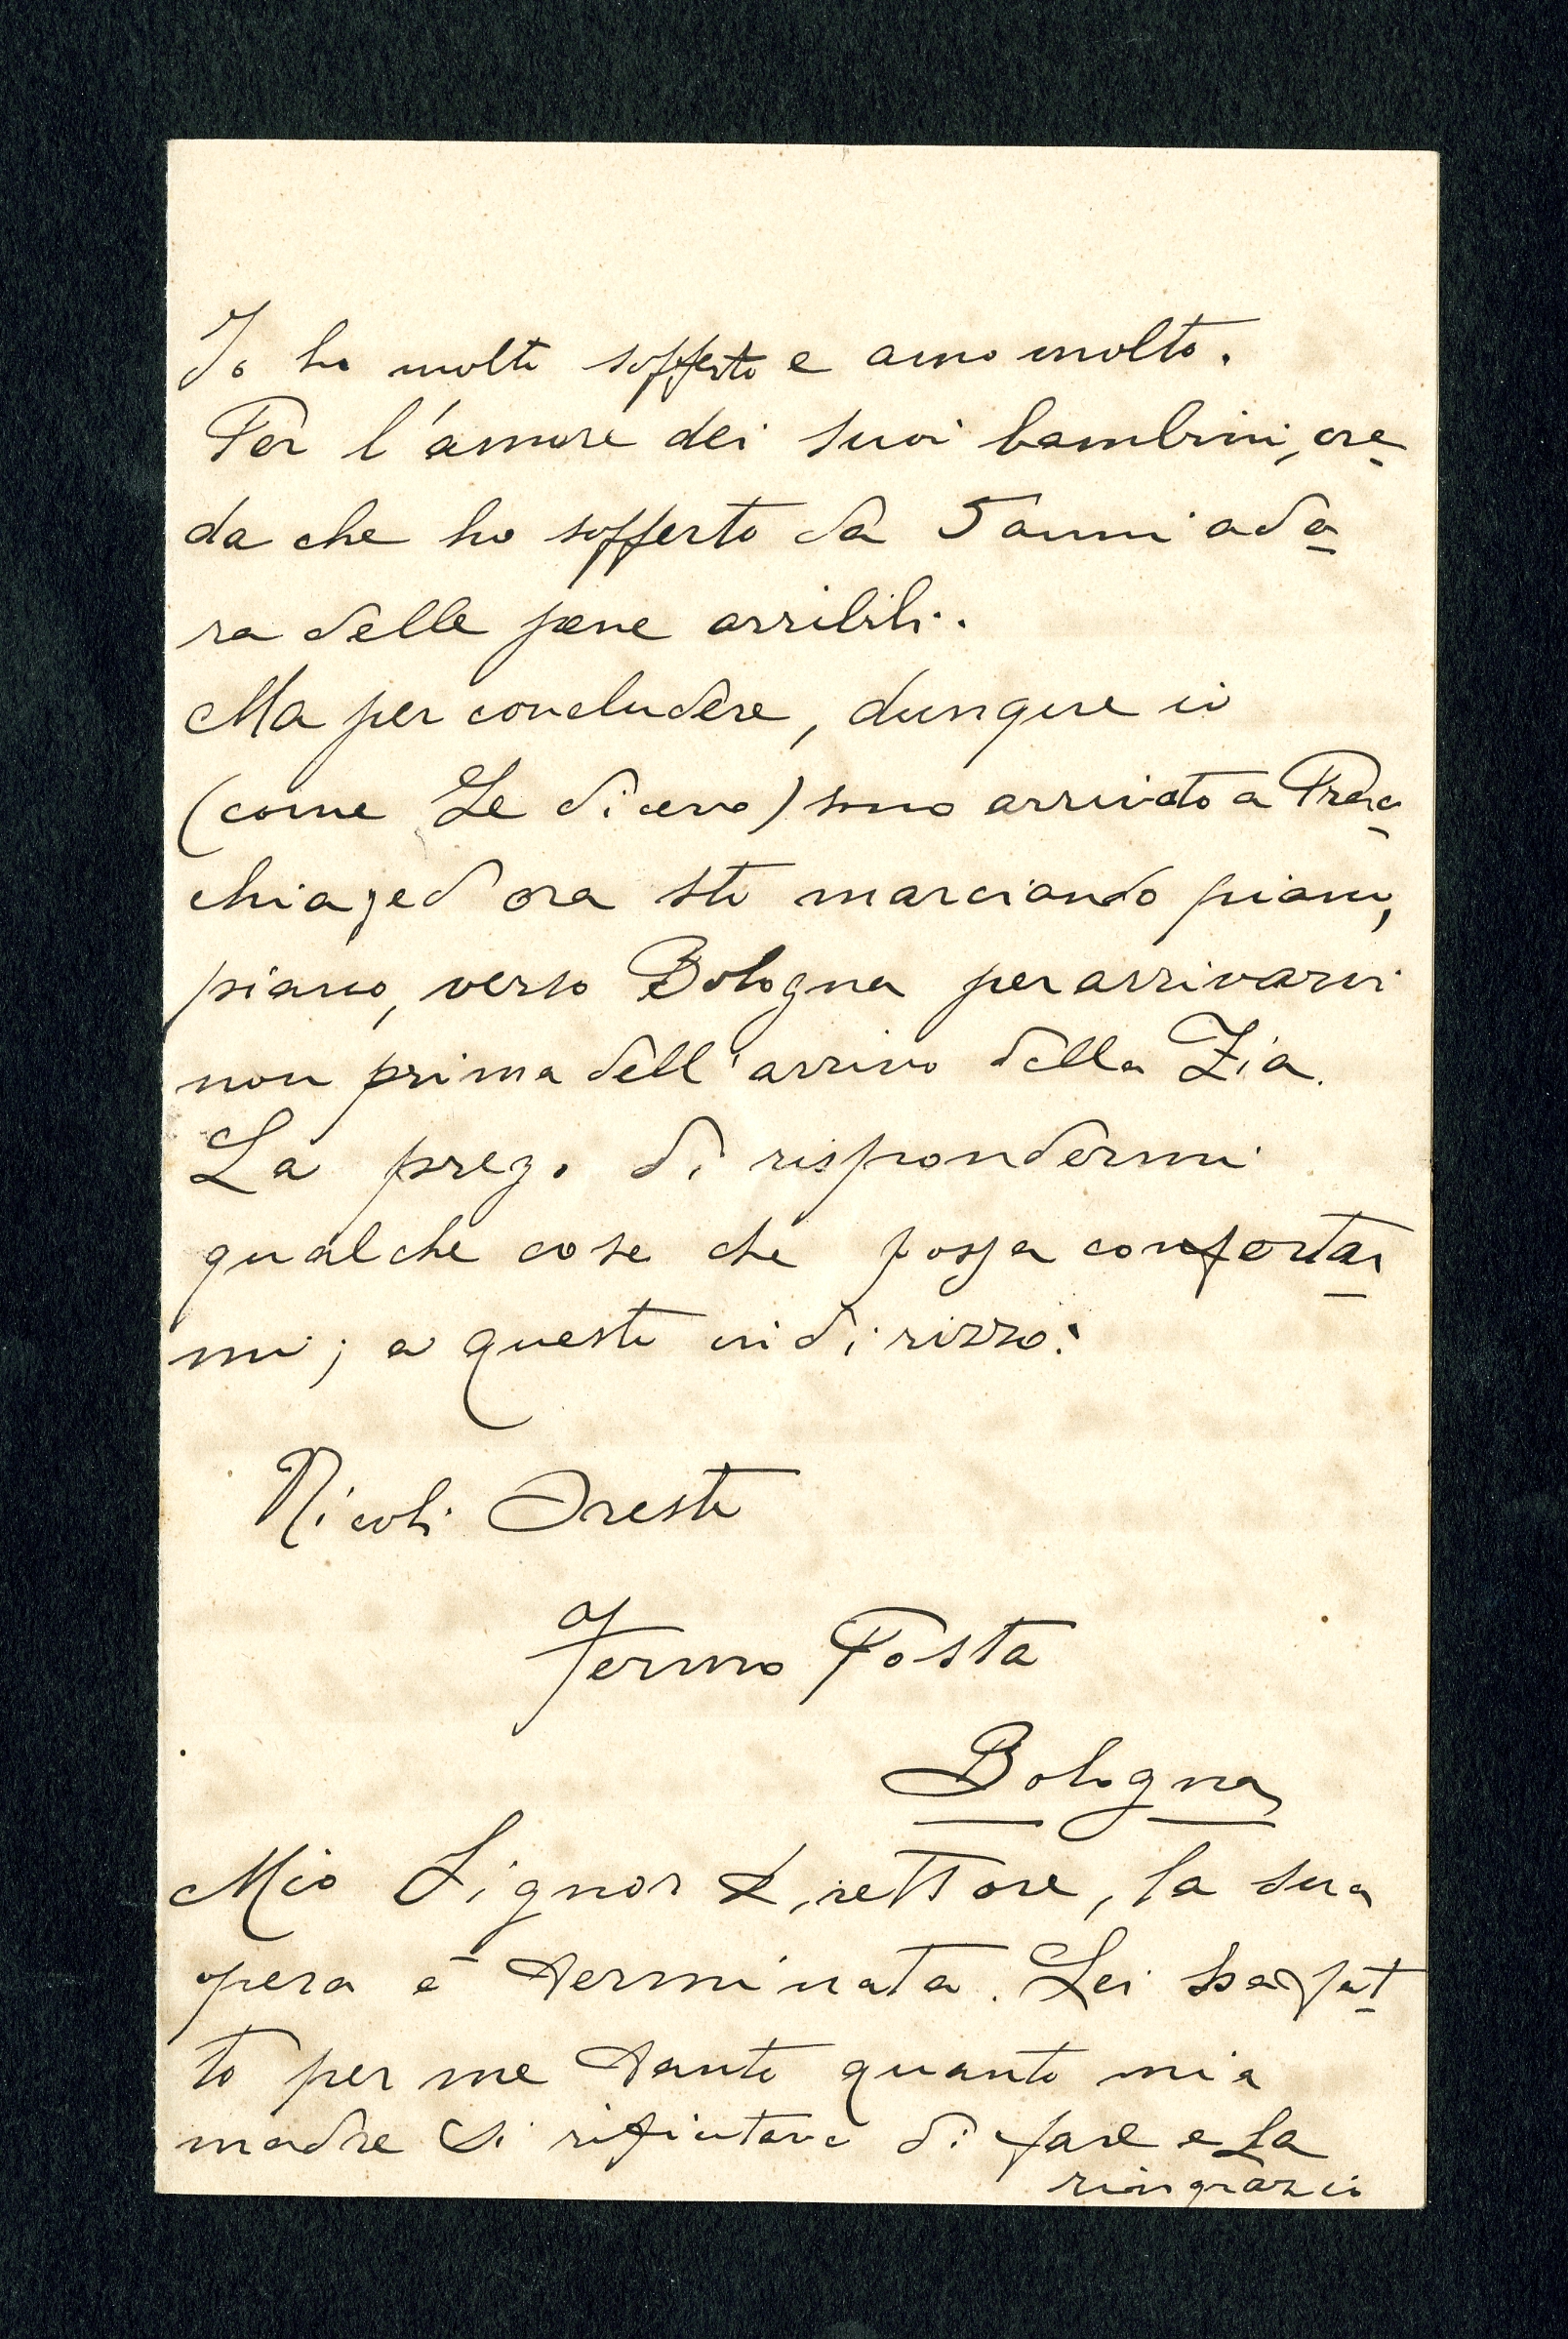 Io ho molto sofferto e amo molto.
Per l'amore dei suoi bambini, cre
da che ho sofferto da 5 anni ado
ra delle pene orribili.
Ma per concludere, dunque io
(come Le dicevo) sono arrivato a Prac
chia, ed ora sto marciando piano,
piano, verso Bologna per arrivarvi
non prima dell'arrivo della Zia.
La prego di rispondermi
qualche cosa che possa confortar
mi; a questo indirizzo:
Nicoli Oreste
Fermo Posta
Bologna
Mio Signor Direttore, la sua
opera è terminata. Lei ha fat
to per me tanto quanto mia
madre si rifiutava di fare e La
ringrazio